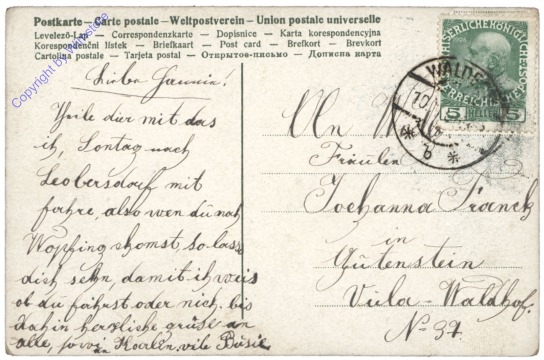 Postkarte – Carte postale – Weltpostverein – Union postale universelle
Levelező-Lap – Correspondenzkarte – Dopisnice – Karta korespondencyjna
Korespondenční listek – Briefkaart – Post card – Brefkort – Brevkort
Cartolina postale – Tarjeta postal – Открытое-письмо – Дописна карта
Copyright by
5 HELLER 5
10
6
Liebe
Theile dier mit das
ich, Sontag nach
Leobersdorf mit
fahre, also wen du nach
Wopfing khomst, so lass
dich sehn, damit ich weis
ob du fährst oder nich. bis
dahin herzliche grüse an
alle, sowi an Karlen, vile Büsie
An
Fräulen
Joehanna Tranck
in
Gutenstein
Viela-Waldhof.
No 37.